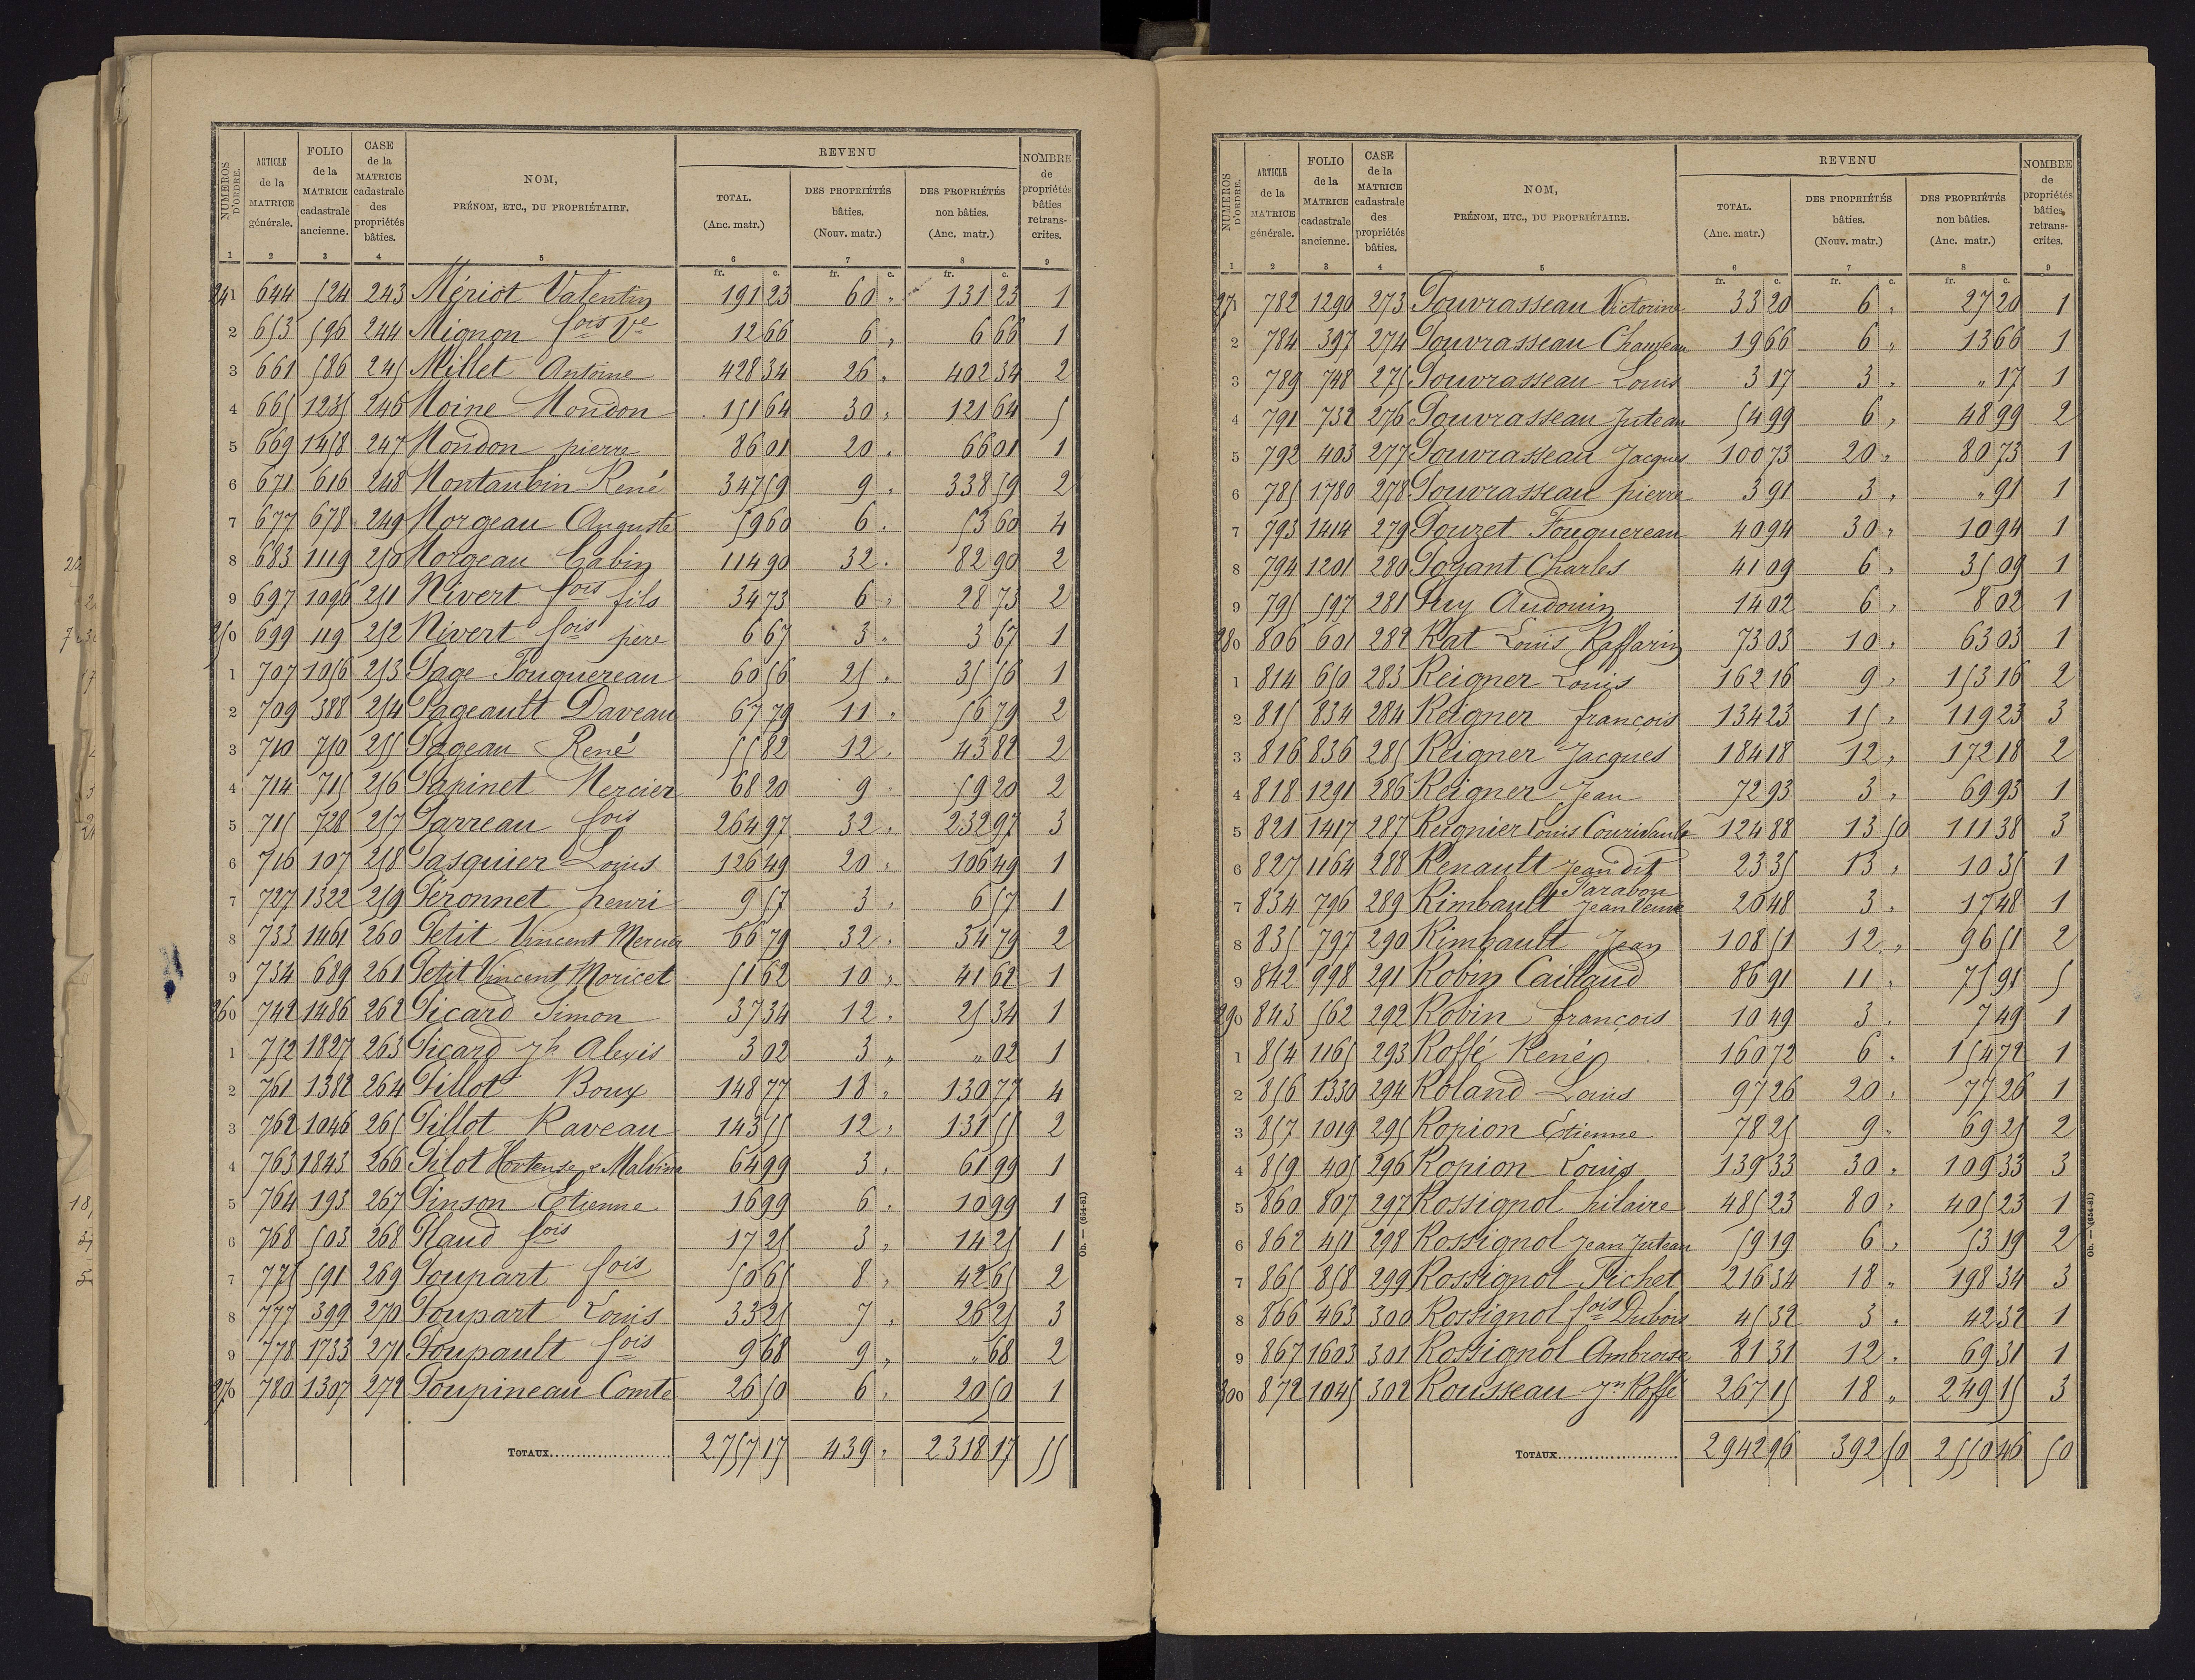 NUMÉROS D'ORDRE. | ARTICLE de la MATRICE générale. | FOLIO de la MATRICE cadastrale ancienne. | CASE de la MATRICE cadastrale des propriétés bâties. | NOM, PRÉNOM, ETC., DU PROPRIÉTAIRE. | REVENU | NOMBRE de propriétés bâties retranscrites.
TOTAL. (Anc. matr.) | DES PROPRIÉTÉS bâties. (Nouv. matr.) | DES PROPRIÉTÉS non bâties. (Anc. matr.)
1 2 3 4 5 6 7 8 9
fr. c. fr. c. fr. c.
241 644 524 243 Mériot Valentin 191 23 60 " 131 23 1
2 653 596 244 Mignon fois Ve 12 66 6 " 6 66 1
3 661 586 245 Millet Antoine 428 34 26 " 402 34 2
4 665 1235 246 Moine Mondon 151 64 30 " 121 64 5
5 669 1458 247 Mondon pierre 86 01 20 " 66 01 1
6 671 616 248 Montaubin René 347 59 9 " 338 59 2
7 677 678 249 Morgeau Auguste 59 60 6 " 53 60 4
8 683 1119 250 Morgeau Gabin 114 90 32 " 82 90 2
9 697 1096 251 Nivert fois fils 34 73 6 " 28 73 2
250 699 119 252 Nivert fois père 6 67 3 " 3 67 1
1 707 1056 253 Page Fouquereau 60 56 25 " 35 56 1
2 709 388 254 Pageault Daveau 67 79 11 " 56 79 2
3 710 750 255 Pageau René 55 82 12 " 43 82 2
4 714 715 256 Papinet Mercier 68 20 9 " 59 20 2
5 715 728 257 Parreau fois 264 97 32 " 232 97 3
6 716 107 258 Pasquier Louis 126 49 20 " 106 49 1
7 727 1322 259 Péronnet henri 9 57 3 " 6 57 1
8 733 1461 260 Petit Vincent Mercier 66 79 32 " 34 79 2
9 734 689 261 Petit Vincent Moricet 51 62 10 " 41 62 1
260 742 1486 262 Picard Simon 37 34 12 " 25 34 1
1 752 1827 263 Picard Jh Alexis 3 02 3 " " 02 1
2 761 1382 264 Pillot Boux 148 77 18 " 130 77 4
3 762 1046 265 Pillot Raveau 143 55 12 " 131 55 2
4 763 1843 266 Pilot Hortense & Malvina 64 99 3 " 61 99 1
5 764 193 267 Pinson Etienne 16 99 6 " 10 99 1
6 768 503 268 Plaud fois 17 25 3 " 14 25 1
7 775 591 269 Poupart fois 50 65 8 " 42 65 2
8 777 399 270 Poupart Louis 33 25 7 " 26 25 3
9 778 1733 271 Poupault fois 9 68 9 " " 68 2
270 780 1307 272 Poupineau Comte 26 50 6 " 20 50 1
TOTAUX 2757 17 439 " 2318 17 55
Ob. — (654-81)
NUMÉROS D'ORDRE. | ARTICLE de la MATRICE générale. | FOLIO de la MATRICE cadastrale ancienne. | CASE de la MATRICE cadastrale des propriétés bâties. | NOM, PRÉNOM, ETC., DU PROPRIÉTAIRE. | REVENU | NOMBRE de propriétés bâties, retranscrites.
TOTAL. (Anc. matr.) | DES PROPRIÉTÉS bâties. (Nouv. matr.) | DES PROPRIÉTÉS non bâties. (Anc. matr.)
1 2 3 4 5 6 7 8 9
fr. c. fr. c. fr. c.
271 782 1290 273 Pouvrasseau Victorine 33 20 6 " 27 20 1
2 784 397 274 Pouvrasseau Chauveau 19 66 6 " 13 66 1
3 789 748 275 Pouvrasseau Louis 3 17 3 " " 17 1
4 791 732 276 Pouvrasseau Juteau 54 99 6 " 48 99 2
5 792 403 277 Pouvrasseau Jacques 100 73 20 " 80 73 1
6 785 1780 278 Pouvrasseau pierre 3 91 3 " " 91 1
7 793 1414 279 Pouzet Fouquereau 40 94 30 " 10 94 1
8 794 1201 280 Poyant Charles 41 09 6 " 35 09 1
9 795 597 281 Puy Audouin 14 02 6 " 8 02 1
280 806 601 282 Rat Louis Raffarin 73 03 10 " 63 03 1
1 814 650 283 Reigner Louis 162 16 9 " 153 16 2
2 815 834 284 Reigner françois 134 23 15 " 119 23 3
3 816 836 285 Reigner Jacques 184 18 12 " 172 18 2
4 818 1291 286 Reigner Jean 72 93 3 " 69 93 1
5 821 1417 287 Reignier Louis Courivault 124 88 13 50 111 38 3
6 827 1164 288 Renault Jean dit Parabou 23 35 13 " 10 35 1
7 834 796 289 Rimbault Jean Veuve 20 48 3 " 17 48 1
8 835 797 290 Rimbault Jean 108 51 12 " 96 51 2
9 842 998 291 Robin Caillaud 86 91 11 " 75 91 5
290 843 562 292 Robin françois 10 49 3 " 7 49 1
1 854 1165 293 Roffé René 160 72 6 " 154 72 1
2 856 1330 294 Roland Louis 97 26 20 " 77 26 1
3 857 1019 295 Ropion Etienne 78 25 9 " 69 25 2
4 859 405 296 Ropion Louis 139 33 30 " 109 33 3
5 860 807 297 Rossignol hilaire 485 23 80 " 405 23 1
6 862 451 298 Rossignol Jean Juteau 59 19 6 " 53 19 2
7 865 858 299 Rossignol Pichet 216 34 18 " 198 34 3
8 866 463 300 Rossignol fois Dubois 45 32 3 " 42 32 1
9 867 1603 301 Rossignol Ambroise 81 31 12 " 69 31 1
300 872 1045 302 Rousseau Jn Roffé 267 15 18 " 249 15 3
TOTAUX 2942 96 392 50 2550 46 50
Ob. — (654-81)